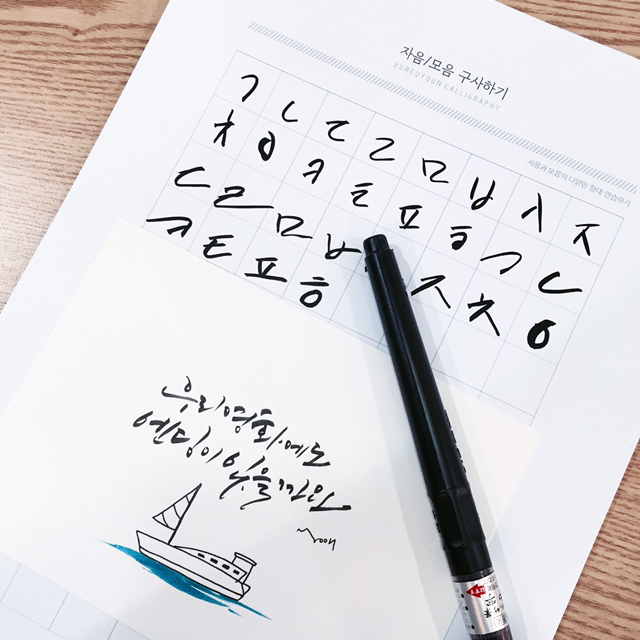 자음/모음 구사하기
CALLIGRAPHY
자음과 모음의 다양한 형태 연습하기
ㄱ ㄴ ㄷ ㄹ ㅁ ㅂ ㅅ ㅈ
ㅊ ㅇ ㅋ ㅌ ㅍ ㅎ ㄱ ㄴ
ㄷ ㄹ ㅁ ㅂ ㅈ ㅊ ㅇ
ㅋ ㅌ ㅍ ㅎ
우리 영화에도
엔딩이
있을까요